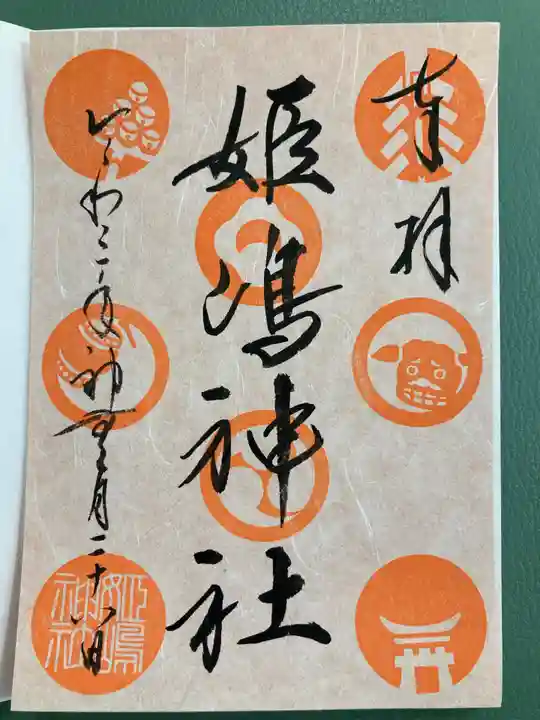 奉拝
姫嶋神社
令和二年神無月二十八日
姫嶋神社